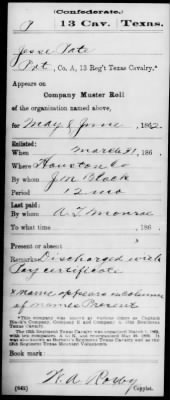 (Confederate.)
P 13 Cav. Texas.
Jesse Pate
Pvt, Co. A, 13 Reg't Texas Cavalry.*
Appears on
Company Muster Roll
of the organization named above,
for May & June, 1862.
Enlisted:
When March 31, 186 .
Where Houston Co
By whom J M Black
Period 12 mo
Last paid:
By whom A. T. Monroe
To what time , 186 .
Present or absent
Remarks: Discharged with
Pay certificate
x name appears in column
of names Present
Book mark:
W. A. Rowby
(642) Copyist.